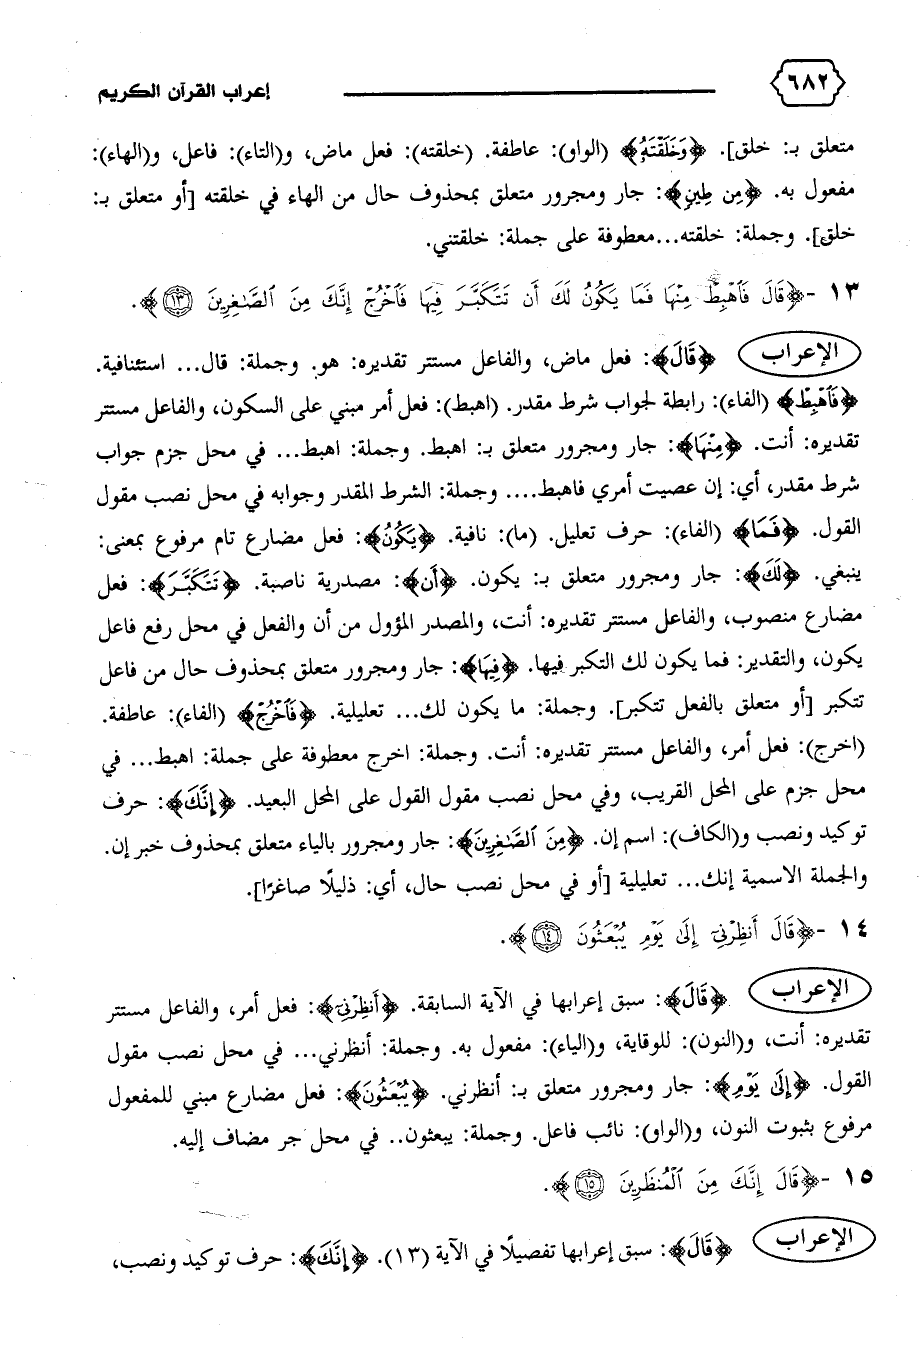 ٦٨٢ إعراب القرآن الكريم
متعلق بـ: خلق]. ﴿وَخَلَقْتَهُ﴾ (الواو): عاطفة. (خلقته): فعل ماض، و(التاء): فاعل، و(الهاء):
مفعول به. ﴿مِن طِينٍ﴾: جار ومجرور متعلق بمحذوف حال من الهاء في خلقته [أو متعلق بـ:
خلق]. وجملة: خلقته...معطوفة على جملة: خلقتني.
١٣ -﴿قَالَ فَاهْبِطْ مِنْهَا فَمَا يَكُونُ لَكَ أَن تَتَكَبَّرَ فِيهَا فَاخْرُجْ إِنَّكَ مِنَ الصَّاغِرِينَ ۝١٣﴾.
الإعراب ﴿قَالَ﴾: فعل ماض، والفاعل مستتر تقديره: هو. وجملة: قال... استئنافية.
﴿فَاهْبِطْ﴾ (الفاء): رابطة لجواب شرط مقدر. (اهبط): فعل أمر مبني على السكون، والفاعل مستتر
تقديره: أنت. ﴿مِنْهَا﴾: جار ومجرور متعلق بـ: اهبط. وجملة: اهبط... في محل جزم جواب
شرط مقدر، أي: إن عصيت أمري فاهبط.... وجملة: الشرط المقدر وجوابه في محل نصب مقول
القول. ﴿فَمَا﴾ (الفاء): حرف تعليل. (ما): نافية. ﴿يَكُونُ﴾: فعل مضارع تام مرفوع بمعنى:
ينبغي. ﴿لَكَ﴾: جار ومجرور متعلق بـ: يكون. ﴿أَن﴾: مصدرية ناصبة. ﴿تَتَكَبَّرَ﴾: فعل
مضارع منصوب، والفاعل مستتر تقديره: أنت، والمصدر المؤول من أن والفعل في محل رفع فاعل
يكون، والتقدير: فما يكون لك التكبر فيها. ﴿فِيهَا﴾: جار ومجرور متعلق بمحذوف حال من فاعل
تتكبر [أو متعلق بالفعل تتكبر]. وجملة: ما يكون لك... تعليلية. ﴿فَاخْرُجْ﴾ (الفاء): عاطفة.
(اخرج): فعل أمر، والفاعل مستتر تقديره: أنت. وجملة: اخرج معطوفة على جملة: اهبط... في
محل جزم على المحل القريب، وفي محل نصب مقول القول على المحل البعيد. ﴿إِنَّكَ﴾: حرف
توكيد ونصب و(الكاف): اسم إن. ﴿مِنَ الصَّاغِرِينَ﴾: جار ومجرور بالياء متعلق بمحذوف خبر إن.
والجملة الاسمية إنك... تعليلية [أو في محل نصب حال، أي: ذليلًا صاغرًا].
١٤ -﴿قَالَ أَنظِرْنِي إِلَى يَوْمِ يُبْعَثُونَ ۝١٤﴾.
الإعراب ﴿قَالَ﴾: سبق إعرابها في الآية السابقة. ﴿أَنظِرْنِي﴾: فعل أمر، والفاعل مستتر
تقديره: أنت، و(النون): للوقاية، و(الياء): مفعول به. وجملة: أنظرني... في محل نصب مقول
القول. ﴿إِلَى يَوْمِ﴾: جار ومجرور متعلق بـ: أنظرني. ﴿يُبْعَثُونَ﴾: فعل مضارع مبني للمفعول
مرفوع بثبوت النون، و(الواو): نائب فاعل. وجملة: يبعثون.. في محل جر مضاف إليه.
١٥ -﴿قَالَ إِنَّكَ مِنَ الْمُنظَرِينَ ۝١٥﴾.
الإعراب ﴿قَالَ﴾: سبق إعرابها تفصيلًا في الآية (١٣). ﴿إِنَّكَ﴾: حرف توكيد ونصب،